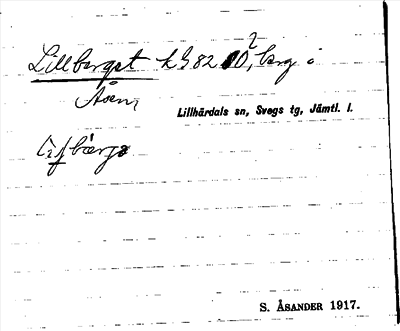 Lillberget k382 10², berg i
Åsen,
Lillhärdals sn, Svegs tg, Jämtl. l.
S. ÅSANDER 1917.